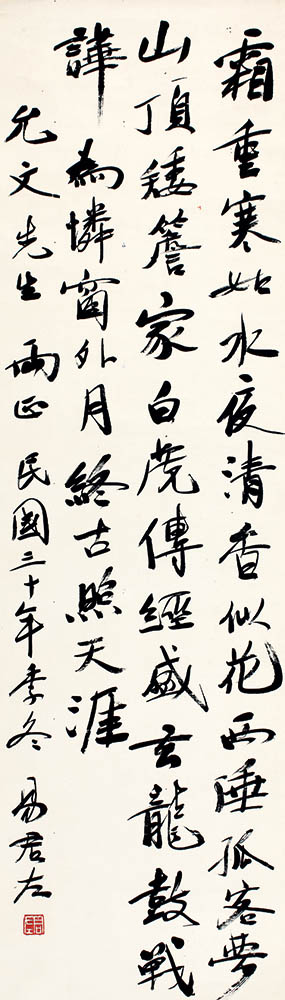 霜重寒如水夜清香似花西陲孤客夢
山頂矮簷家白虎傳經盛玄龍鼓戰
譁為憐窗外月終古照天涯
允文先生 正 民國三十年季冬 易君左